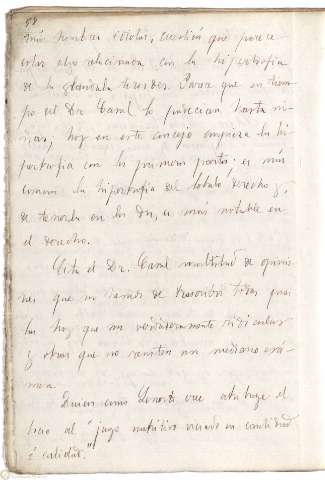 58
más hombres cotolos, cuestión que parece
estar algo relacionada con la hipertrofia
de la glándula tiroides. Parece que en tiem-
po del Dr. Casal lo padecían hasta ni-
ñas, hoy en este concejo empieza la hi-
pertrofia con los primeros partos; es más
común la hipertrofia del lóbulo derecho y,
de tenerla en los dos, es más notable en
el derecho.
Cita el Dr. Casal multitud de opinio-
nes que no hemos de transcribir todas pues
las hay que son verdaderamente ridículas
y otras que no resisten un mediano exá-
men.
Quien como que atribuye el
bocio al "jugo nutritivo viciado en cantidad
ó calidad."